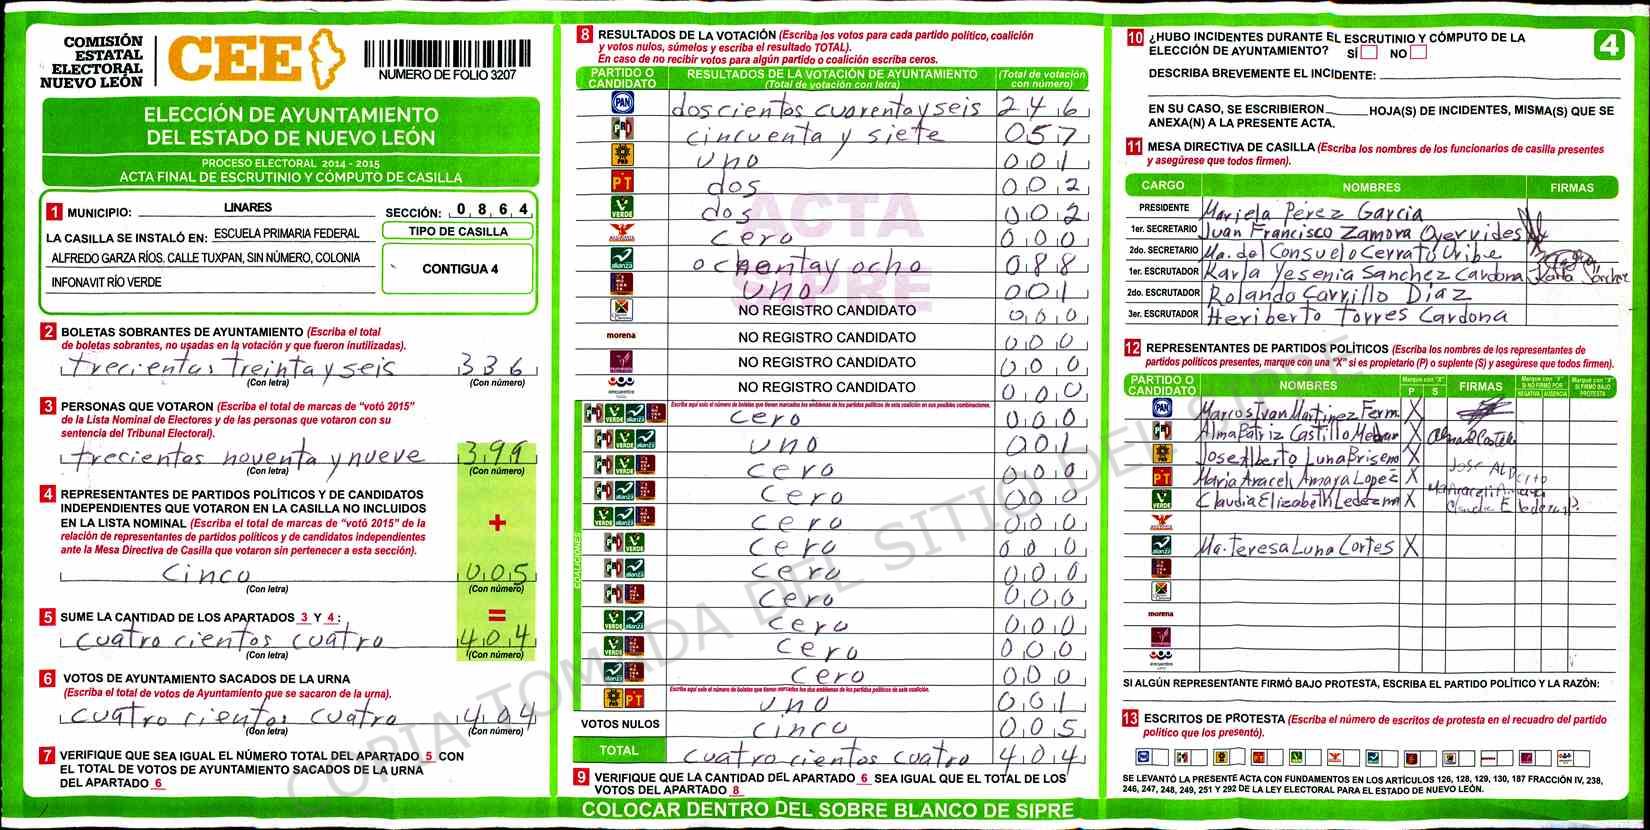 COMISIÓN
ESTATAL
ELECTORAL
NUEVO LEÓN
CEE
NUMERO DE FOLIO 3207
ELECCIÓN DE AYUNTAMIENTO
DEL ESTADO DE NUEVO LEÓN
PROCESO ELECTORAL 2014 - 2015
ACTA FINAL DE ESCRUTINIO Y CÓMPUTO DE CASILLA
1 MUNICIPIO: LINARES SECCIÓN: 0864
LA CASILLA SE INSTALÓ EN: ESCUELA PRIMARIA FEDERAL
ALFREDO GARZA RÍOS. CALLE TUXPAN, SIN NÚMERO, COLONIA
INFONAVIT RÍO VERDE
TIPO DE CASILLA
CONTIGUA 4
2 BOLETAS SOBRANTES DE AYUNTAMIENTO (Escriba el total
de boletas sobrantes, no usadas en la votación y que fueron inutilizadas).
trecientas treinta y seis 336
(Con letra) (Con número)
3 PERSONAS QUE VOTARON (Escriba el total de marcas de “votó 2015”
de la Lista Nominal de Electores y de las personas que votaron con su
sentencia del Tribunal Electoral).
trecientas noventa y nueve 399
(Con letra) (Con número)
4 REPRESENTANTES DE PARTIDOS POLÍTICOS Y DE CANDIDATOS
INDEPENDIENTES QUE VOTARON EN LA CASILLA NO INCLUIDOS
EN LA LISTA NOMINAL (Escriba el total de marcas de “votó 2015” de la
relación de representantes de partidos políticos y de candidatos independientes
ante la Mesa Directiva de Casilla que votaron sin pertenecer a esta sección).
+
cinco 005
(Con letra) (Con número)
=
5 SUME LA CANTIDAD DE LOS APARTADOS 3 Y 4:
cuatro cientos cuatro 404
(Con letra) (Con número)
6 VOTOS DE AYUNTAMIENTO SACADOS DE LA URNA
(Escriba el total de votos de Ayuntamiento que se sacaron de la urna).
cuatro cientos cuatro 404
(Con letra) (Con número)
7 VERIFIQUE QUE SEA IGUAL EL NÚMERO TOTAL DEL APARTADO 5 CON
EL TOTAL DE VOTOS DE AYUNTAMIENTO SACADOS DE LA URNA
DEL APARTADO 6
8 RESULTADOS DE LA VOTACIÓN (Escriba los votos para cada partido político, coalición
y votos nulos, súmelos y escriba el resultado TOTAL).
En caso de no recibir votos para algún partido o coalición escriba ceros.
PARTIDO O
CANDIDATO
RESULTADOS DE LA VOTACIÓN DE AYUNTAMIENTO
(Total de votación con letra)
(Total de votación
con número)
PAN dos cientos cuarenta y seis 246
PRI cincuenta y siete 057
PRD uno 001
PT dos 002
VERDE dos 002
cero 000
alianza ochenta y ocho 088
uno 001
NO REGISTRO CANDIDATO 000
morena NO REGISTRO CANDIDATO 000
NO REGISTRO CANDIDATO 000
encuentro NO REGISTRO CANDIDATO 000
ACTA
SIPRE
COALICIONES
Escriba aquí solo el número de boletas que tienen marcados los emblemas de los partidos políticos de esta coalición en sus posibles combinaciones.
cero 000
uno 001
cero 000
cero 000
cero 000
cero 000
cero 000
cero 000
cero 000
cero 000
cero 000
Escriba aquí solo el número de boletas que tienen marcados los dos emblemas de los partidos políticos de esta coalición.
PRD PT uno 001
VOTOS NULOS cinco 005
TOTAL cuatro cientos cuatro 404
9 VERIFIQUE QUE LA CANTIDAD DEL APARTADO 6 SEA IGUAL QUE EL TOTAL DE LOS
VOTOS DEL APARTADO 8
COLOCAR DENTRO DEL SOBRE BLANCO DE SIPRE
COPIA TOMADA DEL SITIO DEL SIPRE
4
10 ¿HUBO INCIDENTES DURANTE EL ESCRUTINIO Y CÓMPUTO DE LA
ELECCIÓN DE AYUNTAMIENTO? SÍ NO
DESCRIBA BREVEMENTE EL INCIDENTE:
EN SU CASO, SE ESCRIBIERON HOJA(S) DE INCIDENTES, MISMA(S) QUE SE
ANEXA(N) A LA PRESENTE ACTA.
11 MESA DIRECTIVA DE CASILLA (Escriba los nombres de los funcionarios de casilla presentes
y asegúrese que todos firmen).
CARGO NOMBRES FIRMAS
PRESIDENTE Mariela Pérez Garcia
1er. SECRETARIO Juan Francisco Zamora Overvides
2do. SECRETARIO Ma. del Consuelo Cerrato Uribe
1er. ESCRUTADOR Karla Yesenia Sanchez Cardona Karla Sánchez
2do. ESCRUTADOR Rolando Carrillo Díaz
3er. ESCRUTADOR Heriberto Torres Cardona
12 REPRESENTANTES DE PARTIDOS POLÍTICOS (Escriba los nombres de los representantes de
partidos políticos presentes, marque con una “X” si es propietario (P) o suplente (S) y asegúrese que todos firmen).
PARTIDO O
CANDIDATO
NOMBRES
Marque con "X"
P S
FIRMAS
Marque con "X"
SI NO FIRMÓ POR
NEGATIVA AUSENCIA
Marque con "X"
SI FIRMÓ BAJO
PROTESTA
PAN Marcos Ivan Martinez Ferm. X
PRI Alma Patriz Castillo X
PRD Jose Alberto Luna Briseno X Jose Alberto
PT Maria Araceli Amaya Lopez X Ma Araceli Amaya
VERDE Claudia Elizabeth Ledezma X Claudia E
alianza Ma. Teresa Luna Cortes X
morena
encuentro
SI ALGÚN REPRESENTANTE FIRMÓ BAJO PROTESTA, ESCRIBA EL PARTIDO POLÍTICO Y LA RAZÓN:
13 ESCRITOS DE PROTESTA (Escriba el número de escritos de protesta en el recuadro del partido
político que los presentó).
SE LEVANTÓ LA PRESENTE ACTA CON FUNDAMENTOS EN LOS ARTÍCULOS 126, 128, 129, 130, 187 FRACCIÓN IV, 238,
246, 247, 248, 249, 251 Y 292 DE LA LEY ELECTORAL PARA EL ESTADO DE NUEVO LEÓN.